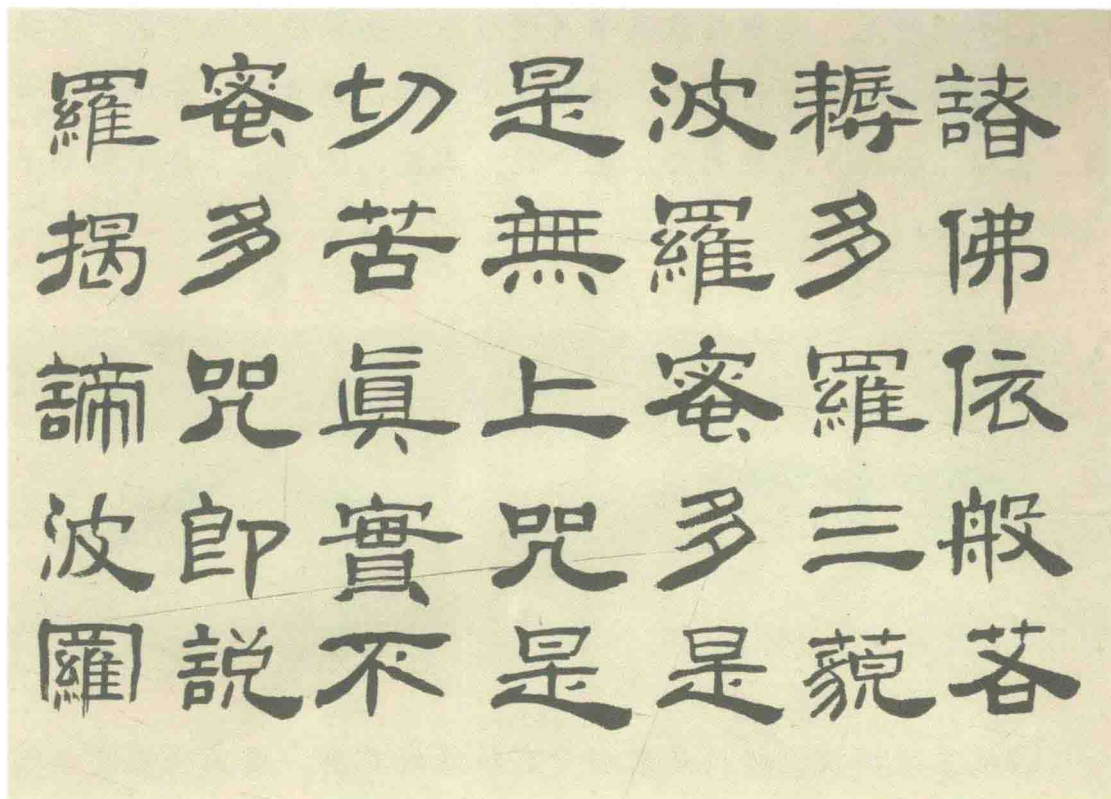 諸佛依般若
耨多羅三藐
波羅蜜多是
是無上咒是
切苦眞實不
蜜多咒即說
羅揭諦波羅